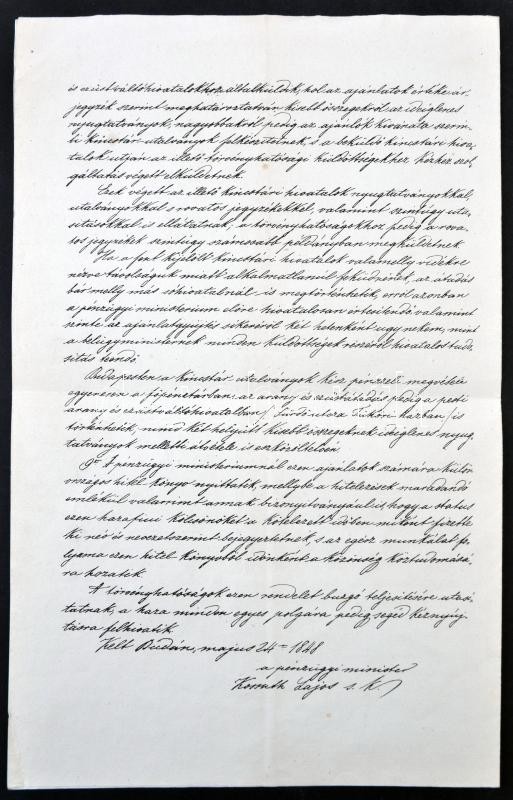 és ezüstváltóhivatalokhoz általküldik, hol az ajánlatok értéke ár-
jegyzék szerint meghatároztatván kisebb összegekről az ideiglenes
nyugtatványok, nagyobbakról pedig az ajánlók kivánata szerin-
ti kincstár utalványok felkészitetnek, s a beküldő kincstári hiva-
talok utján az illető törvényhatósági küldöttségekhez, kézhez szol-
gáltatás végett elküldetnek.
Ezek végett az illető kincstári hivatalok nyugtatványokkal,
utalványokkal s rovatos jegyzékekkel, valamint szintúgy uta-
sitásokkal is ellátatnak; a törvényhatóságokhoz pedig a rova-
tos jegyzékek szintúgy számosabb példányban megküldetnek.
Ha a fent kijelölt kincstári hivatalok valamelly vidékre
nézve távolságuk miatt alkalmatlanúl feküdnének, az átadás
bár melly más sóhivatalnál is megtörténhetik, erről azonban
a pénzügyi ministerium előre hivatalosan értesitendő, valamint
szinte az ajánlatgyüjtés sikeréről két hetenként ugy nekem, mint
a belügyministernek minden küldöttségek részéről hivatalos tudó-
sitás teendő.
Budapesten a kincstár utalványok kész pénzzeli megvétele
egyenesen a főpénztárban, az arany és ezüst átadás pedig a pesti
arany és ezüstváltóhivatalban / Zúrdó utcza Tüköri házban / is
történhetik, mind két helyütt kisebb összegeknek ideiglenes nyug-
tatványok melletti átvétele is eszközöltetvén.
9er A pénzügyi ministeriumnál ezen ajánlatok számára külön
országos hitel könyv nyittatik, mellybe a hitelezések maradandó
emlékül valamint annak bizonyitványául is, hogy a status
ezen hazafiui kölcsönöket a kötelezett időben miként fizette
ki név és nevezetszerint bejegyeztetnek, s az egész munkálat fo-
lyama ezen hitel könyvből időnként a közönség köztudomásá-
ra hozatik.
A törvényhatóságok ezen rendelet buzgó teljesitésére utasi-
tatnak, a haza minden egyes polgára pedig segéd kéznyúj-
tásra felhivatik.
Kelt Budán, május 24én 1848
a pénzügyi minister
Kossuth Lajos s. k.